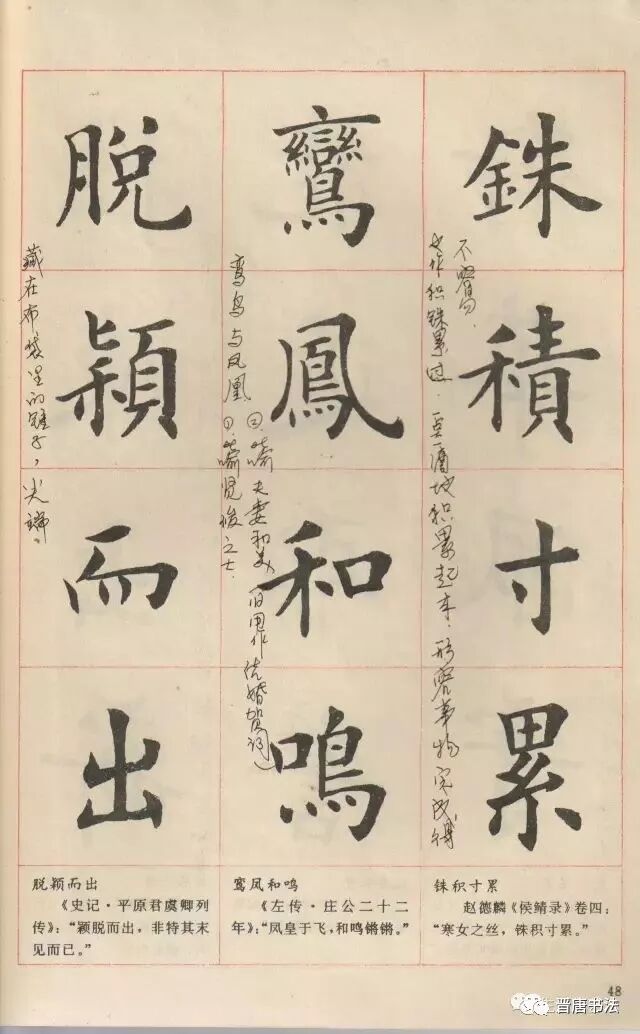 銖積寸累
又作积铢累寸.一点一滴地积累起来.形容事物完成得
不容易.
鸞鳳和鳴
鸾鸟与凤凰 ①.喻贤俊之士.
②.喻夫妻和美 旧用作结婚贺词
脫穎而出
藏在布袋里的锥子，尖端。
铢积寸累
赵德麟《侯鲭录》卷四：
“寒女之丝，铢积寸累。”
鸾凤和鸣
《左传·庄公二十二
年》：“凤皇于飞，和鸣锵锵。”
脱颖而出
《史记·平原君虞卿列
传》：“颖脱而出，非特其末
见而已。”
48
晋唐书法